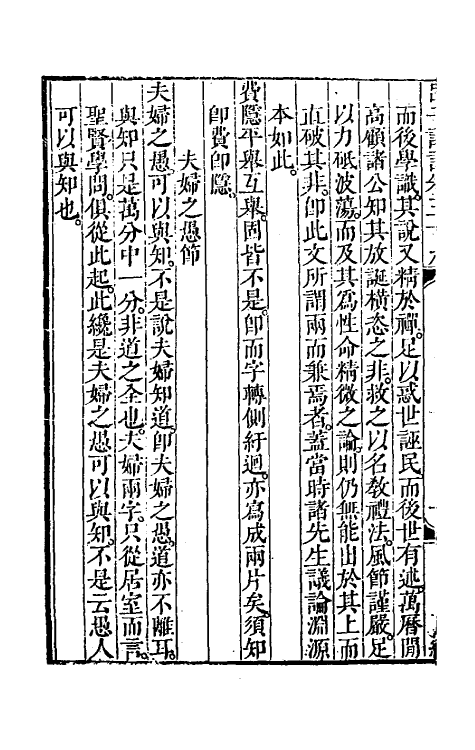 而後學識其說又精於禪。足以惑世誣民。而後世有述。萬曆間
高顧諸公知其放誕橫恣之非。救之以名教禮法。風節謹嚴。足
以力砥波蕩。而及其爲性命精微之論。則仍無能出於其上而
直破其非。卽此文所謂兩而兼焉者。蓋當時諸先生議論淵源
本如此。
費隱平舉互舉。固皆不是。卽而字轉側紆迴。亦寫成兩片矣。須知
卽費卽隱。
夫婦之愚節
夫婦之愚。可以與知。不是說夫婦知道。卽夫婦之愚。道亦不離耳。
與知只是萬分中一分。非道之全也。夫婦兩字。只從居室而言。
聖賢學問。俱從此起。此纔是夫婦之愚可以與知。不是云愚人
可以與知也。